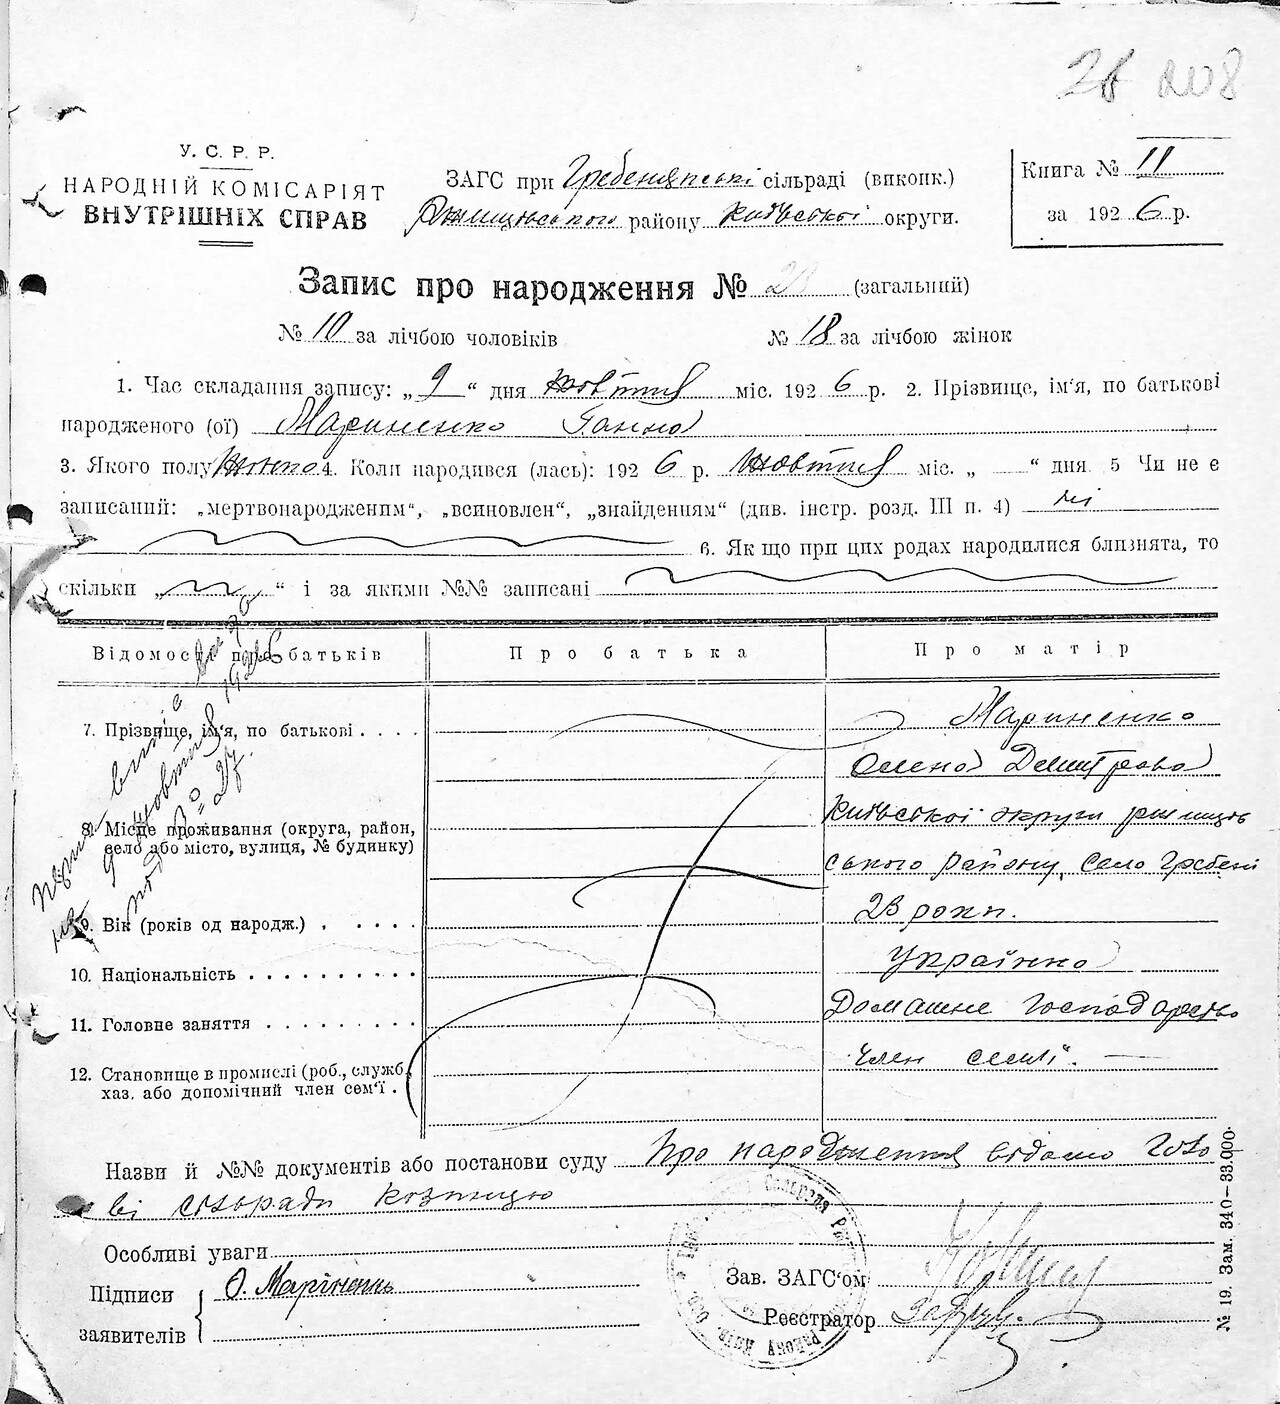 28 208
У. С. Р. Р.
НАРОДНІЙ КОМІСАРІЯТ
ВНУТРІШНІХ СПРАВ
ЗАГС при Гребенянські сільраді (виконк.)
району Київської округи.
Книга № 11
за 1926 р.
Запис про народження № 28 (загальний)
№ 10 за лічбою чоловіків № 18 за лічбою жінок
1. Час складання запису: „9“ дня жовтня міс. 1926 р. 2. Прізвище, ім'я, по батькові
народженого (ої) Мариненко Ганна
3. Якого полу жіноч. 4. Коли народився (лась): 1926 р. жовтня міс. „ “ дня 5 Чи не є
записаний: „мертвонародженим“, „всиновлен“, „знайденням“ (див. інстр. розд. III п. 4) ні
6. Якщо при цих родах народилися близнята, то
скільки „ “ і за якими №№ записані
Відомості про батьків Про батька Про матір
7. Прізвище, ім'я, по батькові . . . . Мариненко
Олена Демитрова
8. Місце проживання (округа, район,
село або місто, вулиця, № будинку)
Київської округи ржищів
ського району, село Гребені
9. Вік (років од народж.) . . . . 23 роки.
10. Національність . . . . . . . . . Українка
11. Головне заняття . . . . . . . . . Домашнє господарство
12. Становище в промислі (роб., служб.,
хаз. або допомічний член сем'ї . член семії.
1926
№ 27.
Назви й №№ документів або постанови суду Про народження відомо голо
ві сільради
Особливі уваги
Підписи
заявителів
О. Маріненк
Зав. ЗАГС'ом
Реєстратор
№ 19. Зам. 340—33.000.